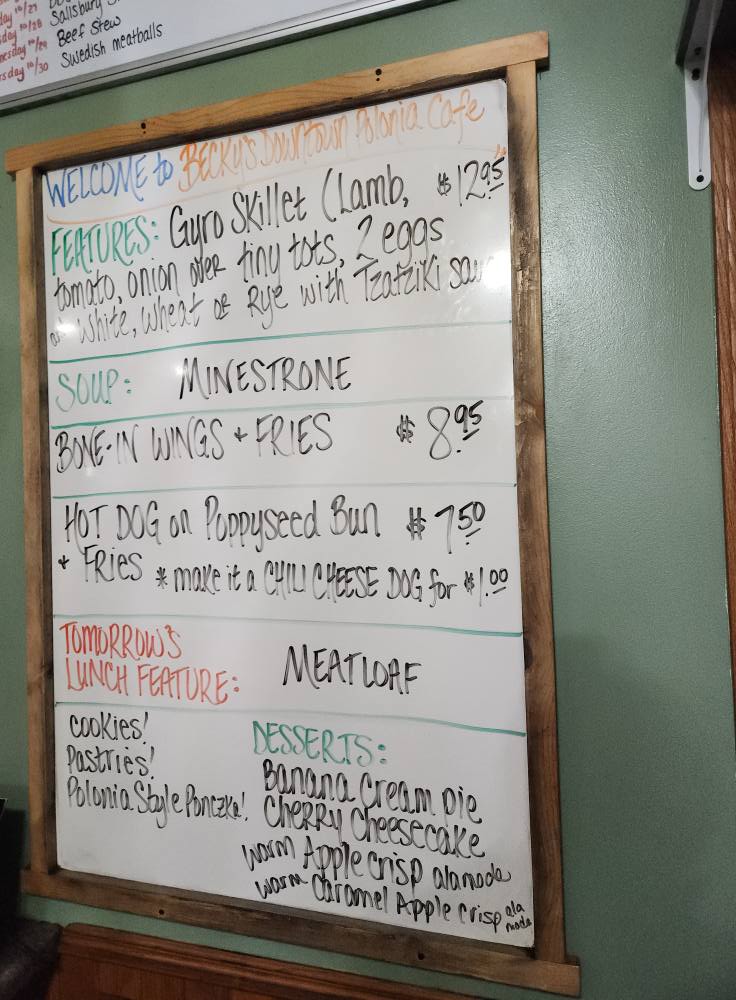 10/27
Salisbury
day 10/28
Beef Stew
10/29
Swedish meatballs
10/30
WELCOME to BECKY'S Downtown Polonia Cafe
FEATURES: Gyro Skillet (Lamb, $12.95
tomato, onion over tiny tots, 2 eggs
white, wheat or Rye with Tzatziki
SOUP: MINESTRONE
BONE-IN WINGS + FRIES $8.95
HOT DOG on Poppyseed Bun $7.50
+ Fries * make it a CHILI CHEESE DOG for $1.00
TOMORROW'S
LUNCH FEATURE: MEATLOAF
cookies!
Pastries!
Polonia Style Ponczka!
DESSERTS:
Banana Cream pie
Cherry Cheesecake
warm Apple crisp alamode
warm Caramel Apple Crisp ala mode